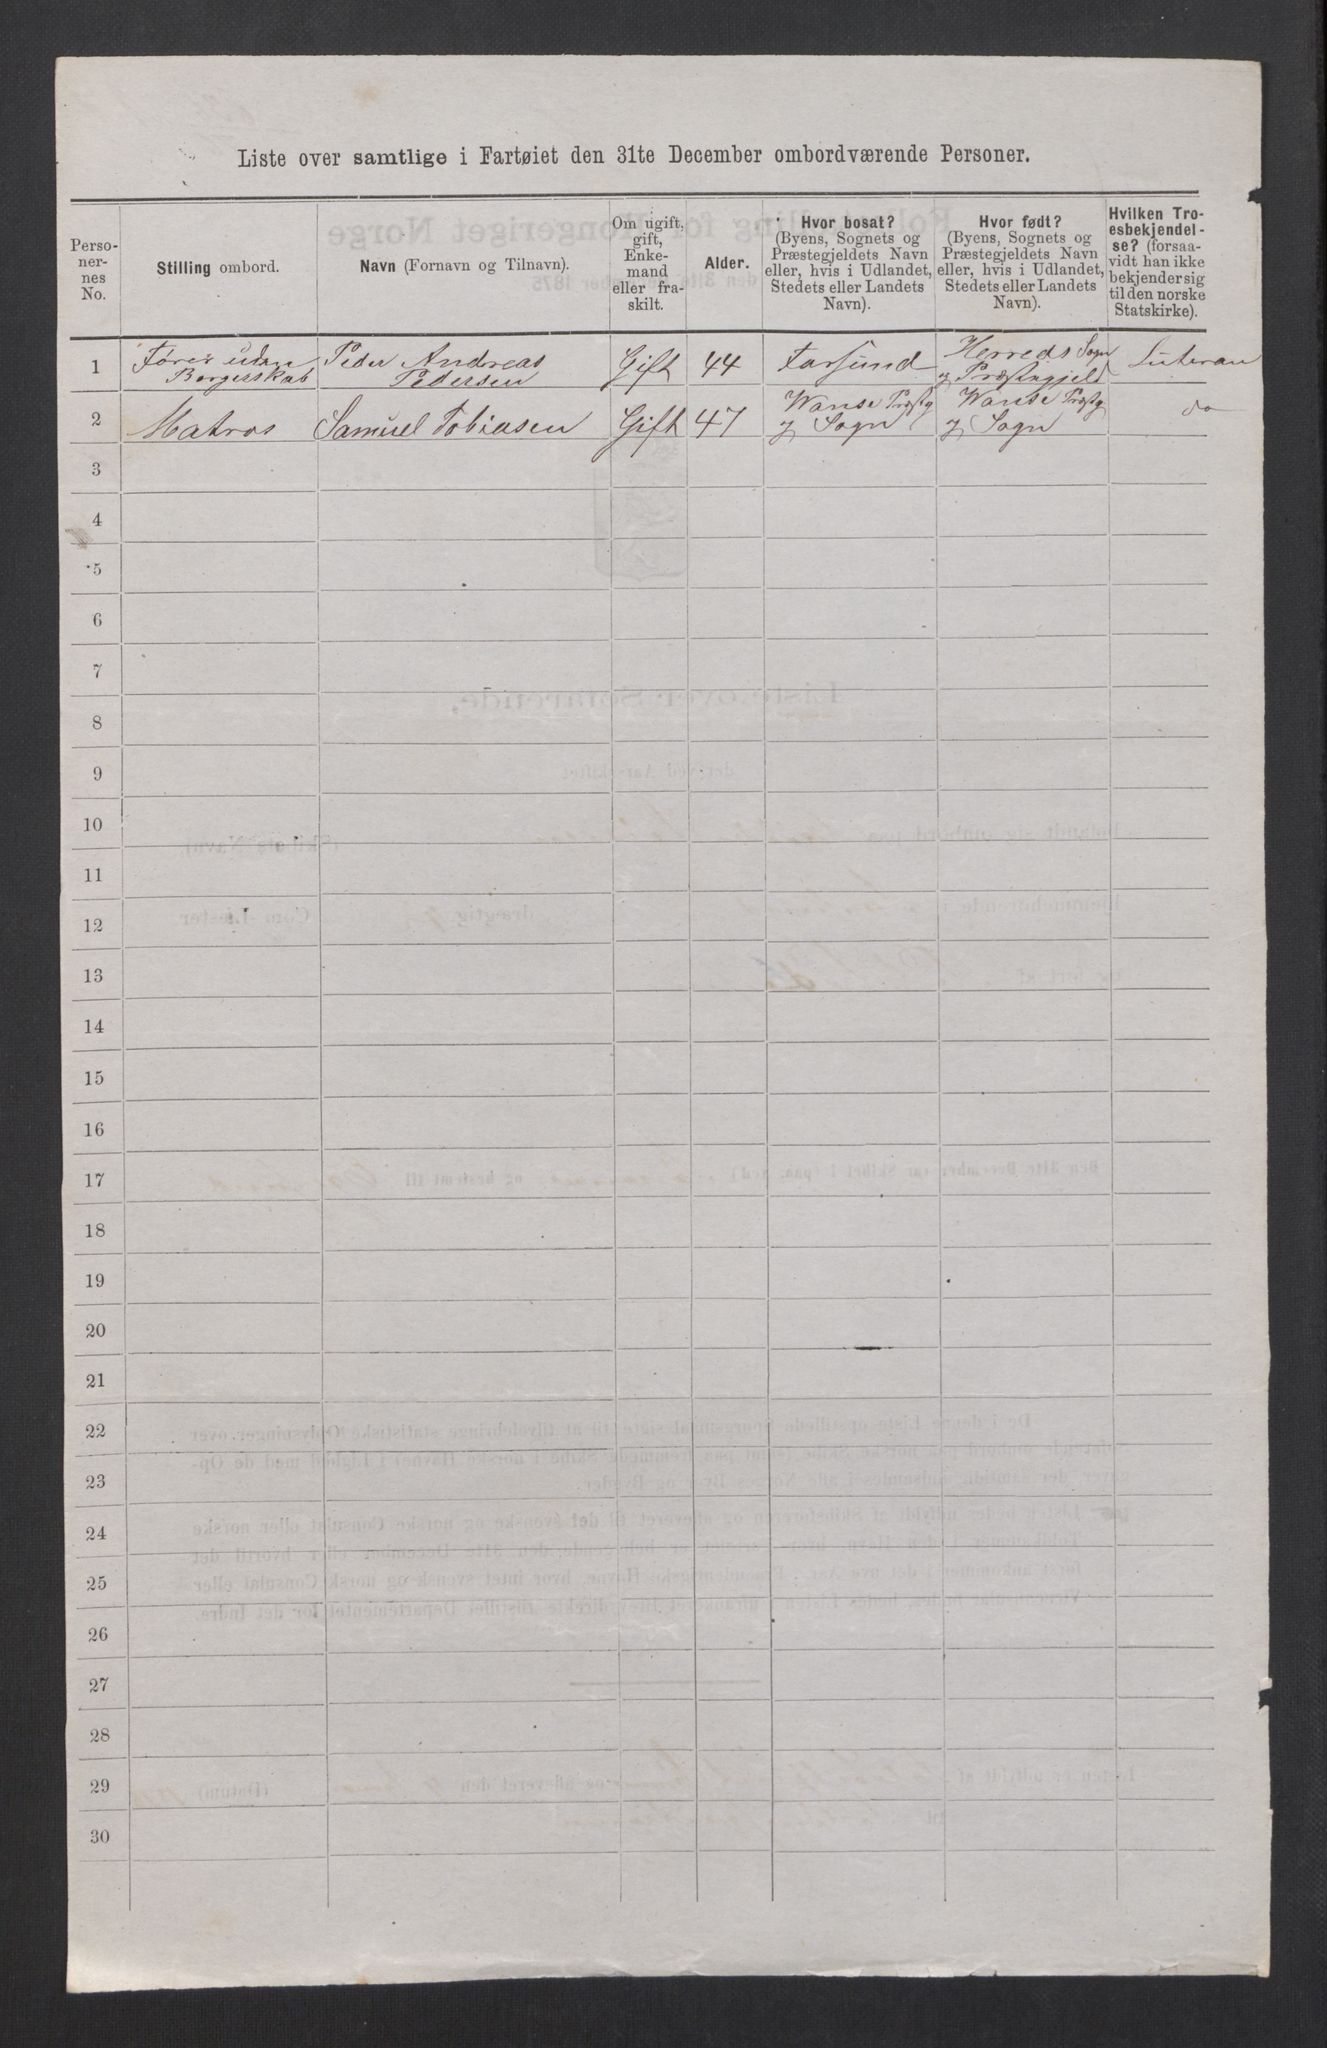 Liste over samtlige i Fartøiet den 31te December ombordværende Personer.
Perso-
nernes
No.
Stilling ombord.
Navn (Fornavn og Tilnavn).
Om ugift,
gift,
Enke-
mand
eller fra-
skilt.
Alder.
Hvor bosat?
(Byens, Sognets og
Præstegjeldets Navn
eller, hvis i Udlandet,
Stedets eller Landets
Navn).
Hvor født?
(Byens, Sognets og
Præstegjeldets Navn
eller, hvis i Udlandet,
Stedets eller Landets
Navn).
Hvilken Tro-
esbekjendel-
se? (forsaa-
vidt han ikke
bekjender sig
til den norske
Statskirke).
1 Fører uden Peder Andreas Gift 44 Farsund Herreds Sogn Luteran
Borgerskab Pedersen og Præstegjeld
2 Matros Samuel Tobiasen Gift 47 Wanse Præstg Wanse Præstg do
og Sogn og Sogn
3
4
5
6
7
8
9
10
11
12
13
14
15
16
17
18
19
20
21
22
23
24
25
26
27
28
29
30